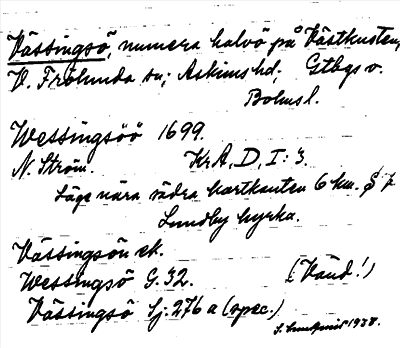 Vässingsö, numera halvö på Västkusten,
V. Frölunda sn; Askims hd. Gtbgs o.
Bohusl.
Wessingsöö 1699.
N. Ström. Kr.A., D, I: 3.
Läge nära södra kartkanten 6 km. S
Lundby kyrka.
Vässingsön ek.
Wessingsö G. 32. (Vänd!)
Vässingsö Sj: 276 a (spec.)
1938.